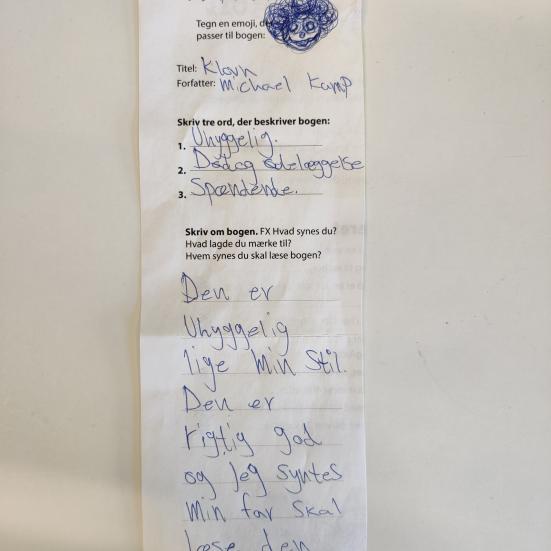 Tegn en emoji, de
passer til bogen:
Titel: Klovn
Forfatter: Michael Kamp
Skriv tre ord, der beskriver bogen:
1. Uhyggelig.
2. Død og ødelæggelse
3. Spændende.
Skriv om bogen. FX Hvad synes du?
Hvad lagde du mærke til?
Hvem synes du skal læse bogen?
Den er
Uhyggelig
lige Min Stil.
Den er
rigtig god
og jeg syntes
Min far skal
læse den